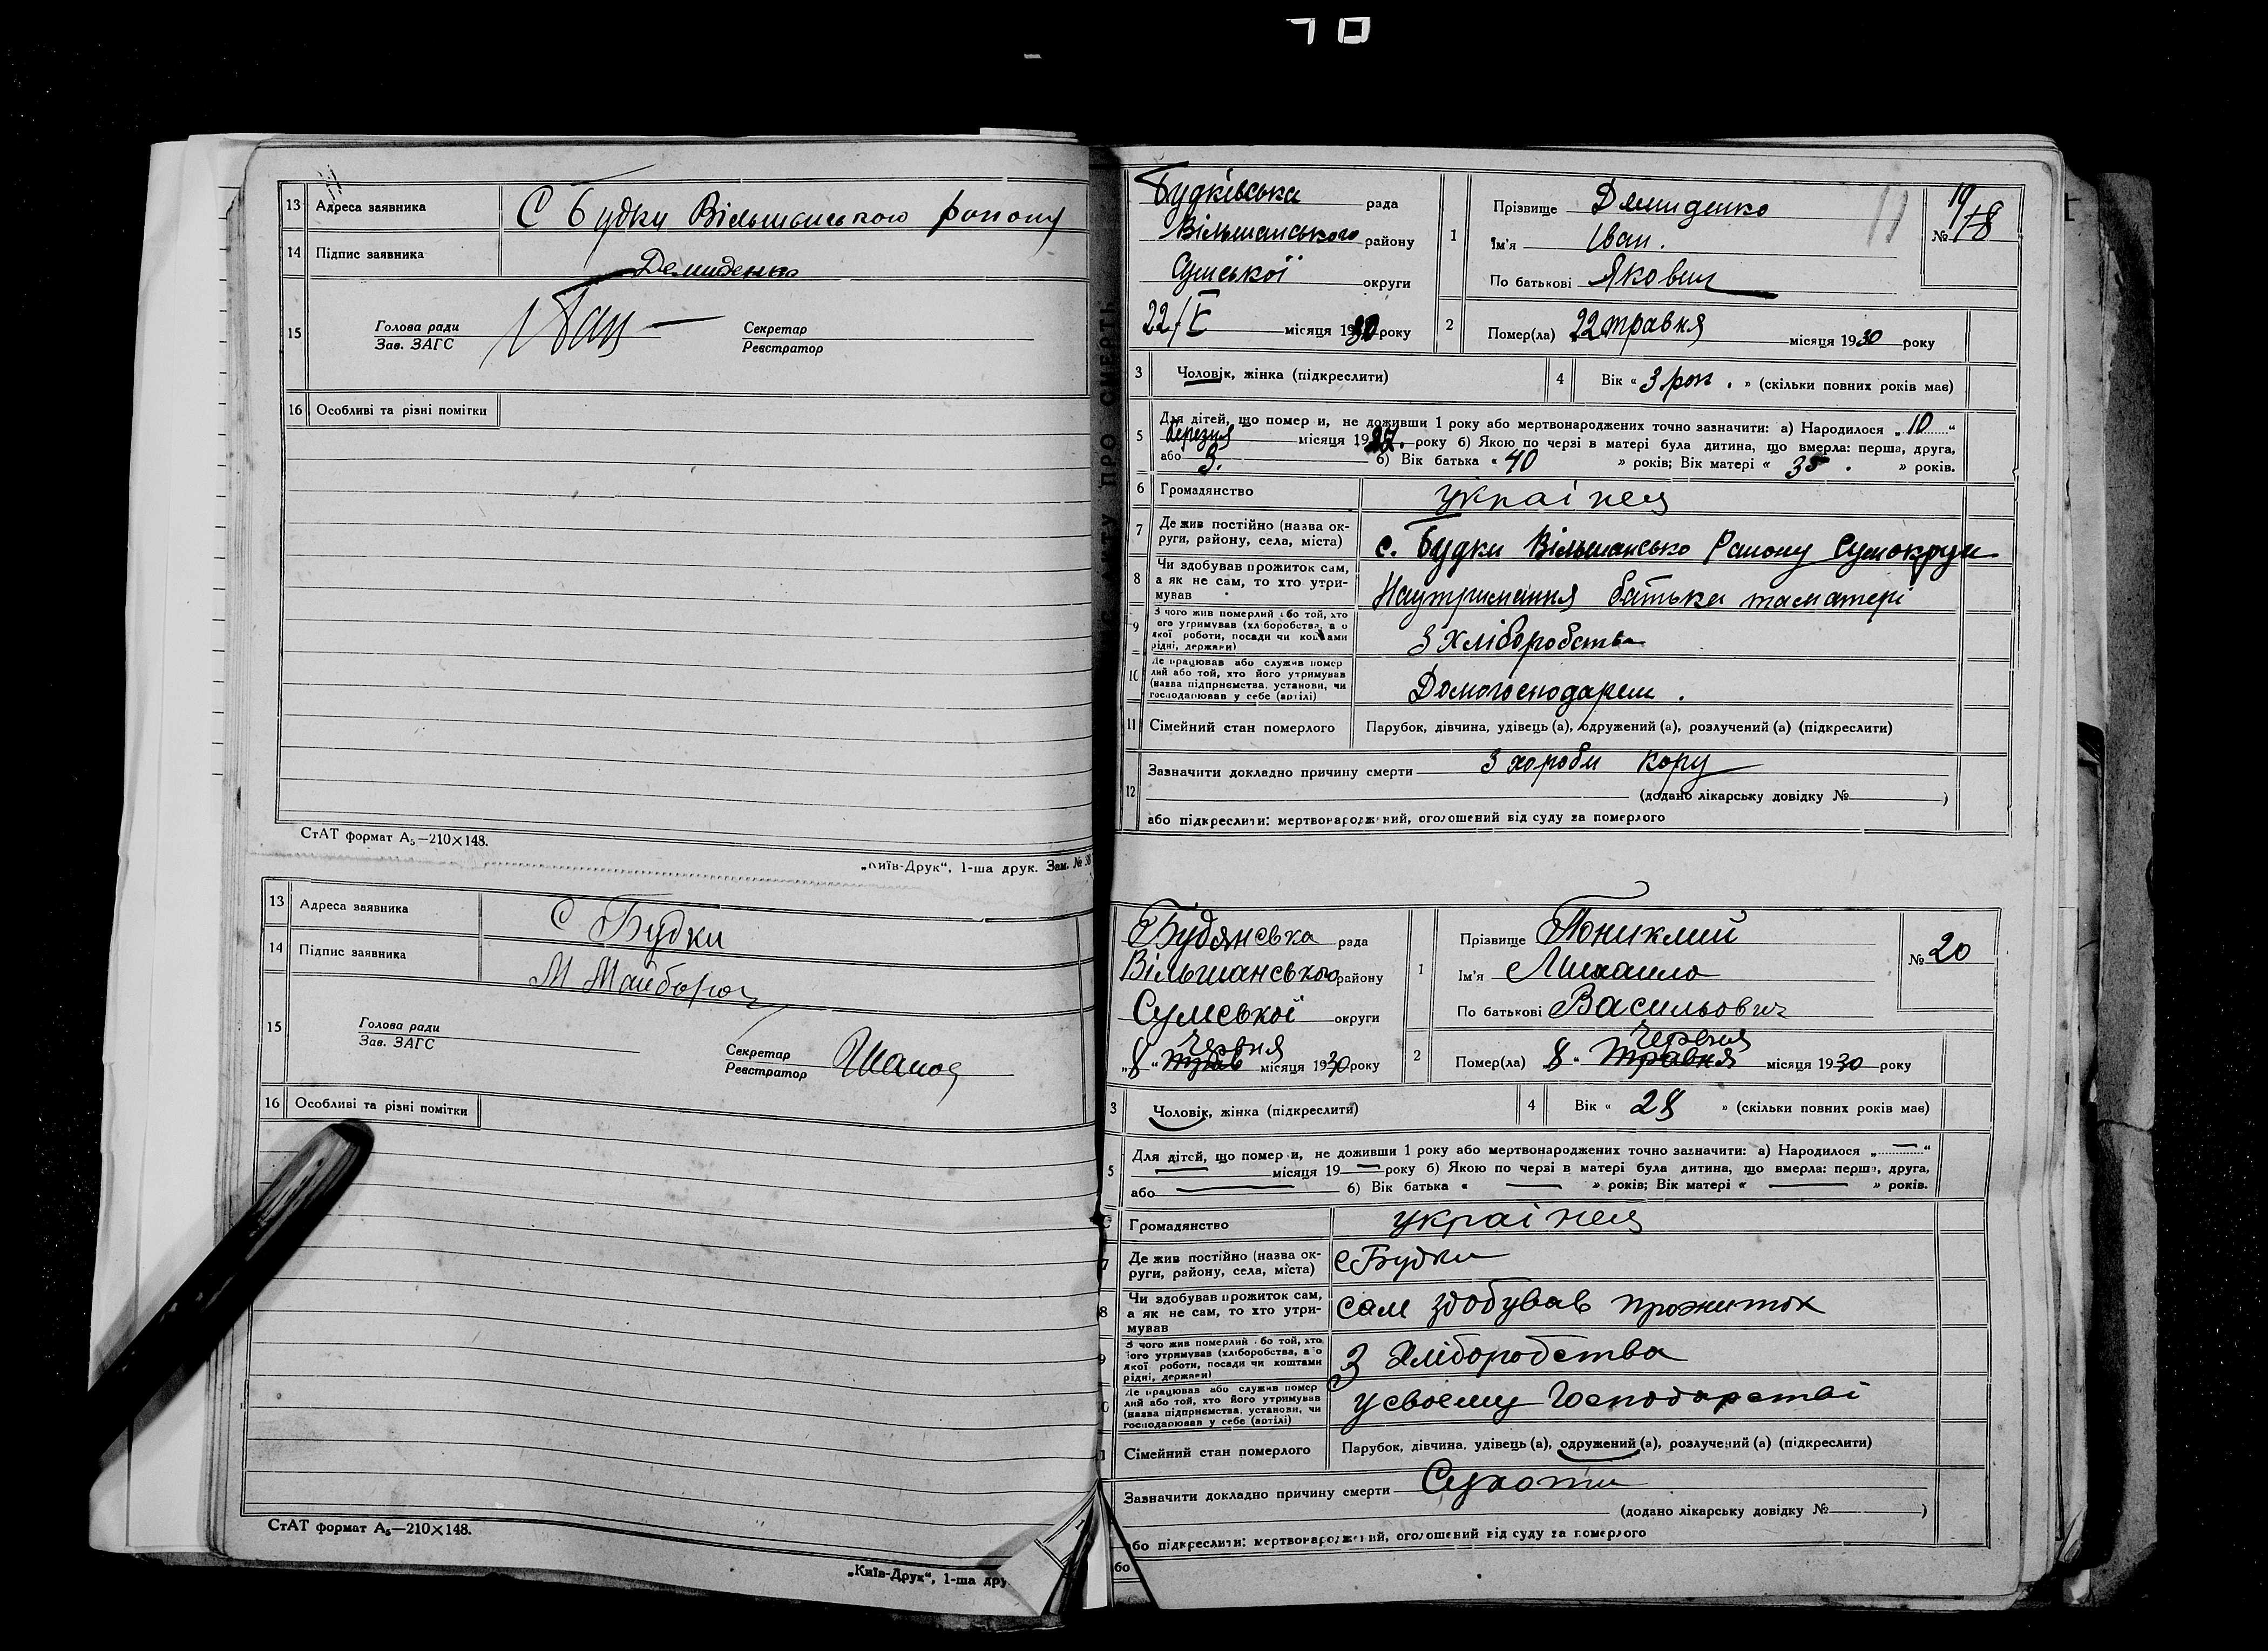 13 Адреса заявника С Будки Вільшанського району
14 Підпис заявника Демиденко
15 Голова ради
Зав. ЗАГС
Секретар
Реєстратор
16 Особливі та різні помітки
СтАТ формат А₅—210×148.
„Київ-Друк“, 1-ша друк. Зам. №
13 Адреса заявника С Будки
14 Підпис заявника М Майборода
15 Голова ради
Зав. ЗАГС
Секретар
Реєстратор
16 Особливі та різні помітки
СтАТ формат А₅—210×148.
„Київ-Друк“, 1-ша дру
Будківська рада
Вільшанського району
Сумської округи
22/V місяця 1930 року
1 Прізвище Демиденко
Ім'я Іван.
По батькові Якович
№ 19
18
2 Помер(ла) 22 травня місяця 1930 року
3 Чоловік, жінка (підкреслити)
4 Вік « 3 рок. » (скільки повних років має)
5 Для дітей, що помер и, не доживши 1 року або мертвонароджених точно зазначити: а) Народилося „ 10 “
березня місяця 1927. року б) Якою по черзі в матері була дитина, що вмерла: перша, друга,
або 3. б) Вік батька « 40 » років; Вік матері « 35 . » років.
6 Громадянство українец
7 Де жив постійно (назва ок-
руги, району, села, міста) с. Будки Вільшансько Району Сумокруги
8 Чи здобував прожиток сам,
а як не сам, то хто утри-
мував Наутримання батька таматері
9 З чого жив померлий або той, хто
ого утримував (хліборобства, а о
якої роботи, посади чи коштами
рідні, держави) З хліборобства
10 Де працював або служив помер
лий або той, хто його утримував
(назва підприємства, установи, чи
господарював у себе (артілі) Домогосподарем .
11 Сімейний стан померлого Парубок, дівчина, удівець (а), одружений (а), розлучений (а) (підкреслити)
12 Зазначити докладно причину смерти З хороби кору
(додано лікарську довідку № )
або підкреслити: мертвонароджений, оголошений від суду за померлого
Будянська рада
Вільшанського району
Сумської округи
Червня
„8“ трав місяця 1930 року
1 Прізвище Пониклий
Ім'я Михаило
По батькові Васильович
№ 20
Червня
2 Помер(ла) 8 “ травня місяця 1930 року
3 Чоловік, жінка (підкреслити)
4 Вік « 28 » (скільки повних років має)
5 Для дітей, що помер и, не доживши 1 року або мертвонароджених точно зазначити: а) Народилося „ — “
— місяця 19 — року б) Якою по черзі в матері була дитина, що вмерла: перша, друга,
або — б) Вік батька « — » років; Вік матері « — » років.
Громадянство українец
7 Де жив постійно (назва ок-
руги, району, села, міста) с Будки
8 Чи здобував прожиток сам,
а як не сам, то хто утри-
мував сам здобував прожиток
9 З чого жив померлий або той, хто
його утримував (хліборобства, а о
якої роботи, посади чи коштами
рідні, держави) З Хліборобства
Де працював або служив помер
лий або той, хто його утримував
(назва підприємства, установи, чи
господарював у себе (артілі) у своєму Господарстві
Сімейний стан померлого Парубок, дівчина, удівець (а), одружений (а), розлучений (а) (підкреслити)
Зазначити докладно причину смерти Сухоти
(додано лікарську довідку № )
або підкреслити: мертвонароджений, оголошений від суду за померлого
бо